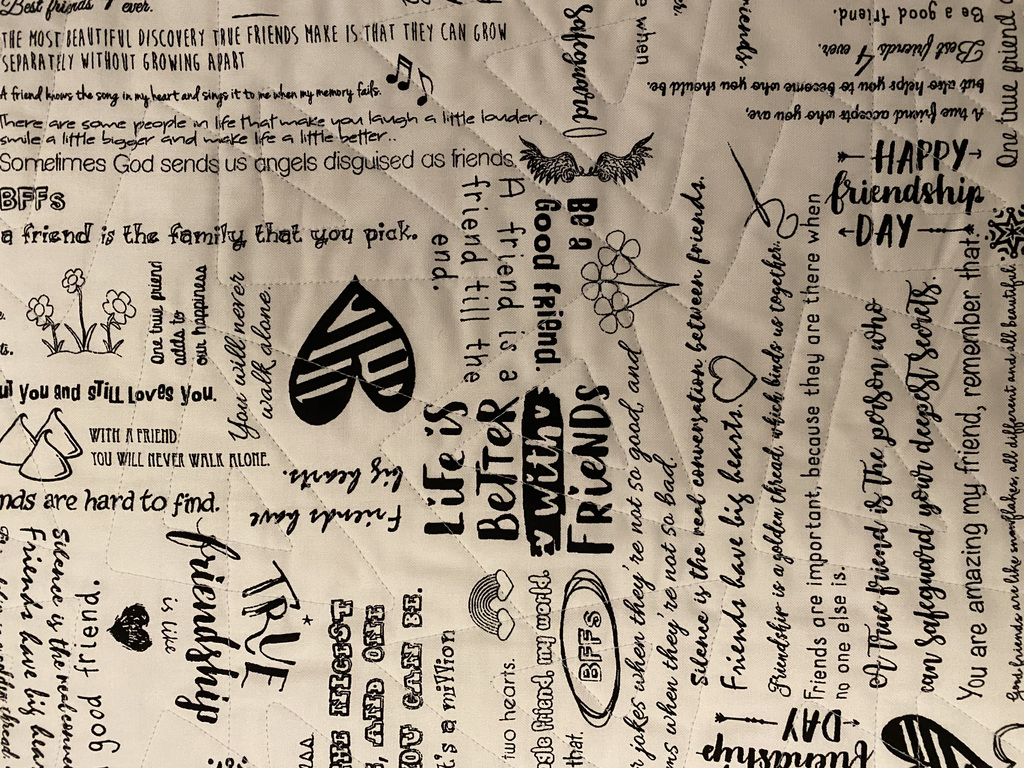 Best friends 4 ever.
THE MOST BEAUTIFUL DISCOVERY TRUE FRIENDS MAKE IS THAT THEY CAN GROW
SEPARATELY WITHOUT GROWING APART
A friend knows the song in my heart and sings it to me when my memory fails.
There are some people in life that make you laugh a little louder,
smile a little bigger and make life a little better..
Sometimes God sends us angels disguised as friends.
BFFs
a friend is the family that you pick.
One true friend
adds to
our happiness
You will never
walk alone.
you and still loves you.
WITH A FRIEND
YOU WILL NEVER WALK ALONE.
nds are hard to find.
Friends have
big hearts.
A friend is a
friend till the
end.
Be a
Good friend.
safeguard
e when
riends.
Be a good friend.
Best friends 4 ever.
A true friend accepts who you are,
but also helps you to become who you should be.
HAPPY
friendship
DAY
One true friend
LiFe iS
BeTTeR
with
FRieNDS
r jokes when they're not so good, and
ms when they're not so bad.
Silence is the real conversation between friends.
Friends have big hearts.
Friendship is a golden thread, which binds us together.
Friends are important, because they are there when
no one else is.
A true friend is the person who
can safeguard your deepest secrets.
You are amazing my friend, remember that.
Good friends are like snowflakes, all different and all beautiful.
friendship
is like
TRUE
good friend.
Silence is the real conver
Friends have big hear
THE NICEST
, AND ONE
YOU CAN BE.
t's a million
two hearts.
gle friend, my world.
that.
BFFs
friendship
DAY